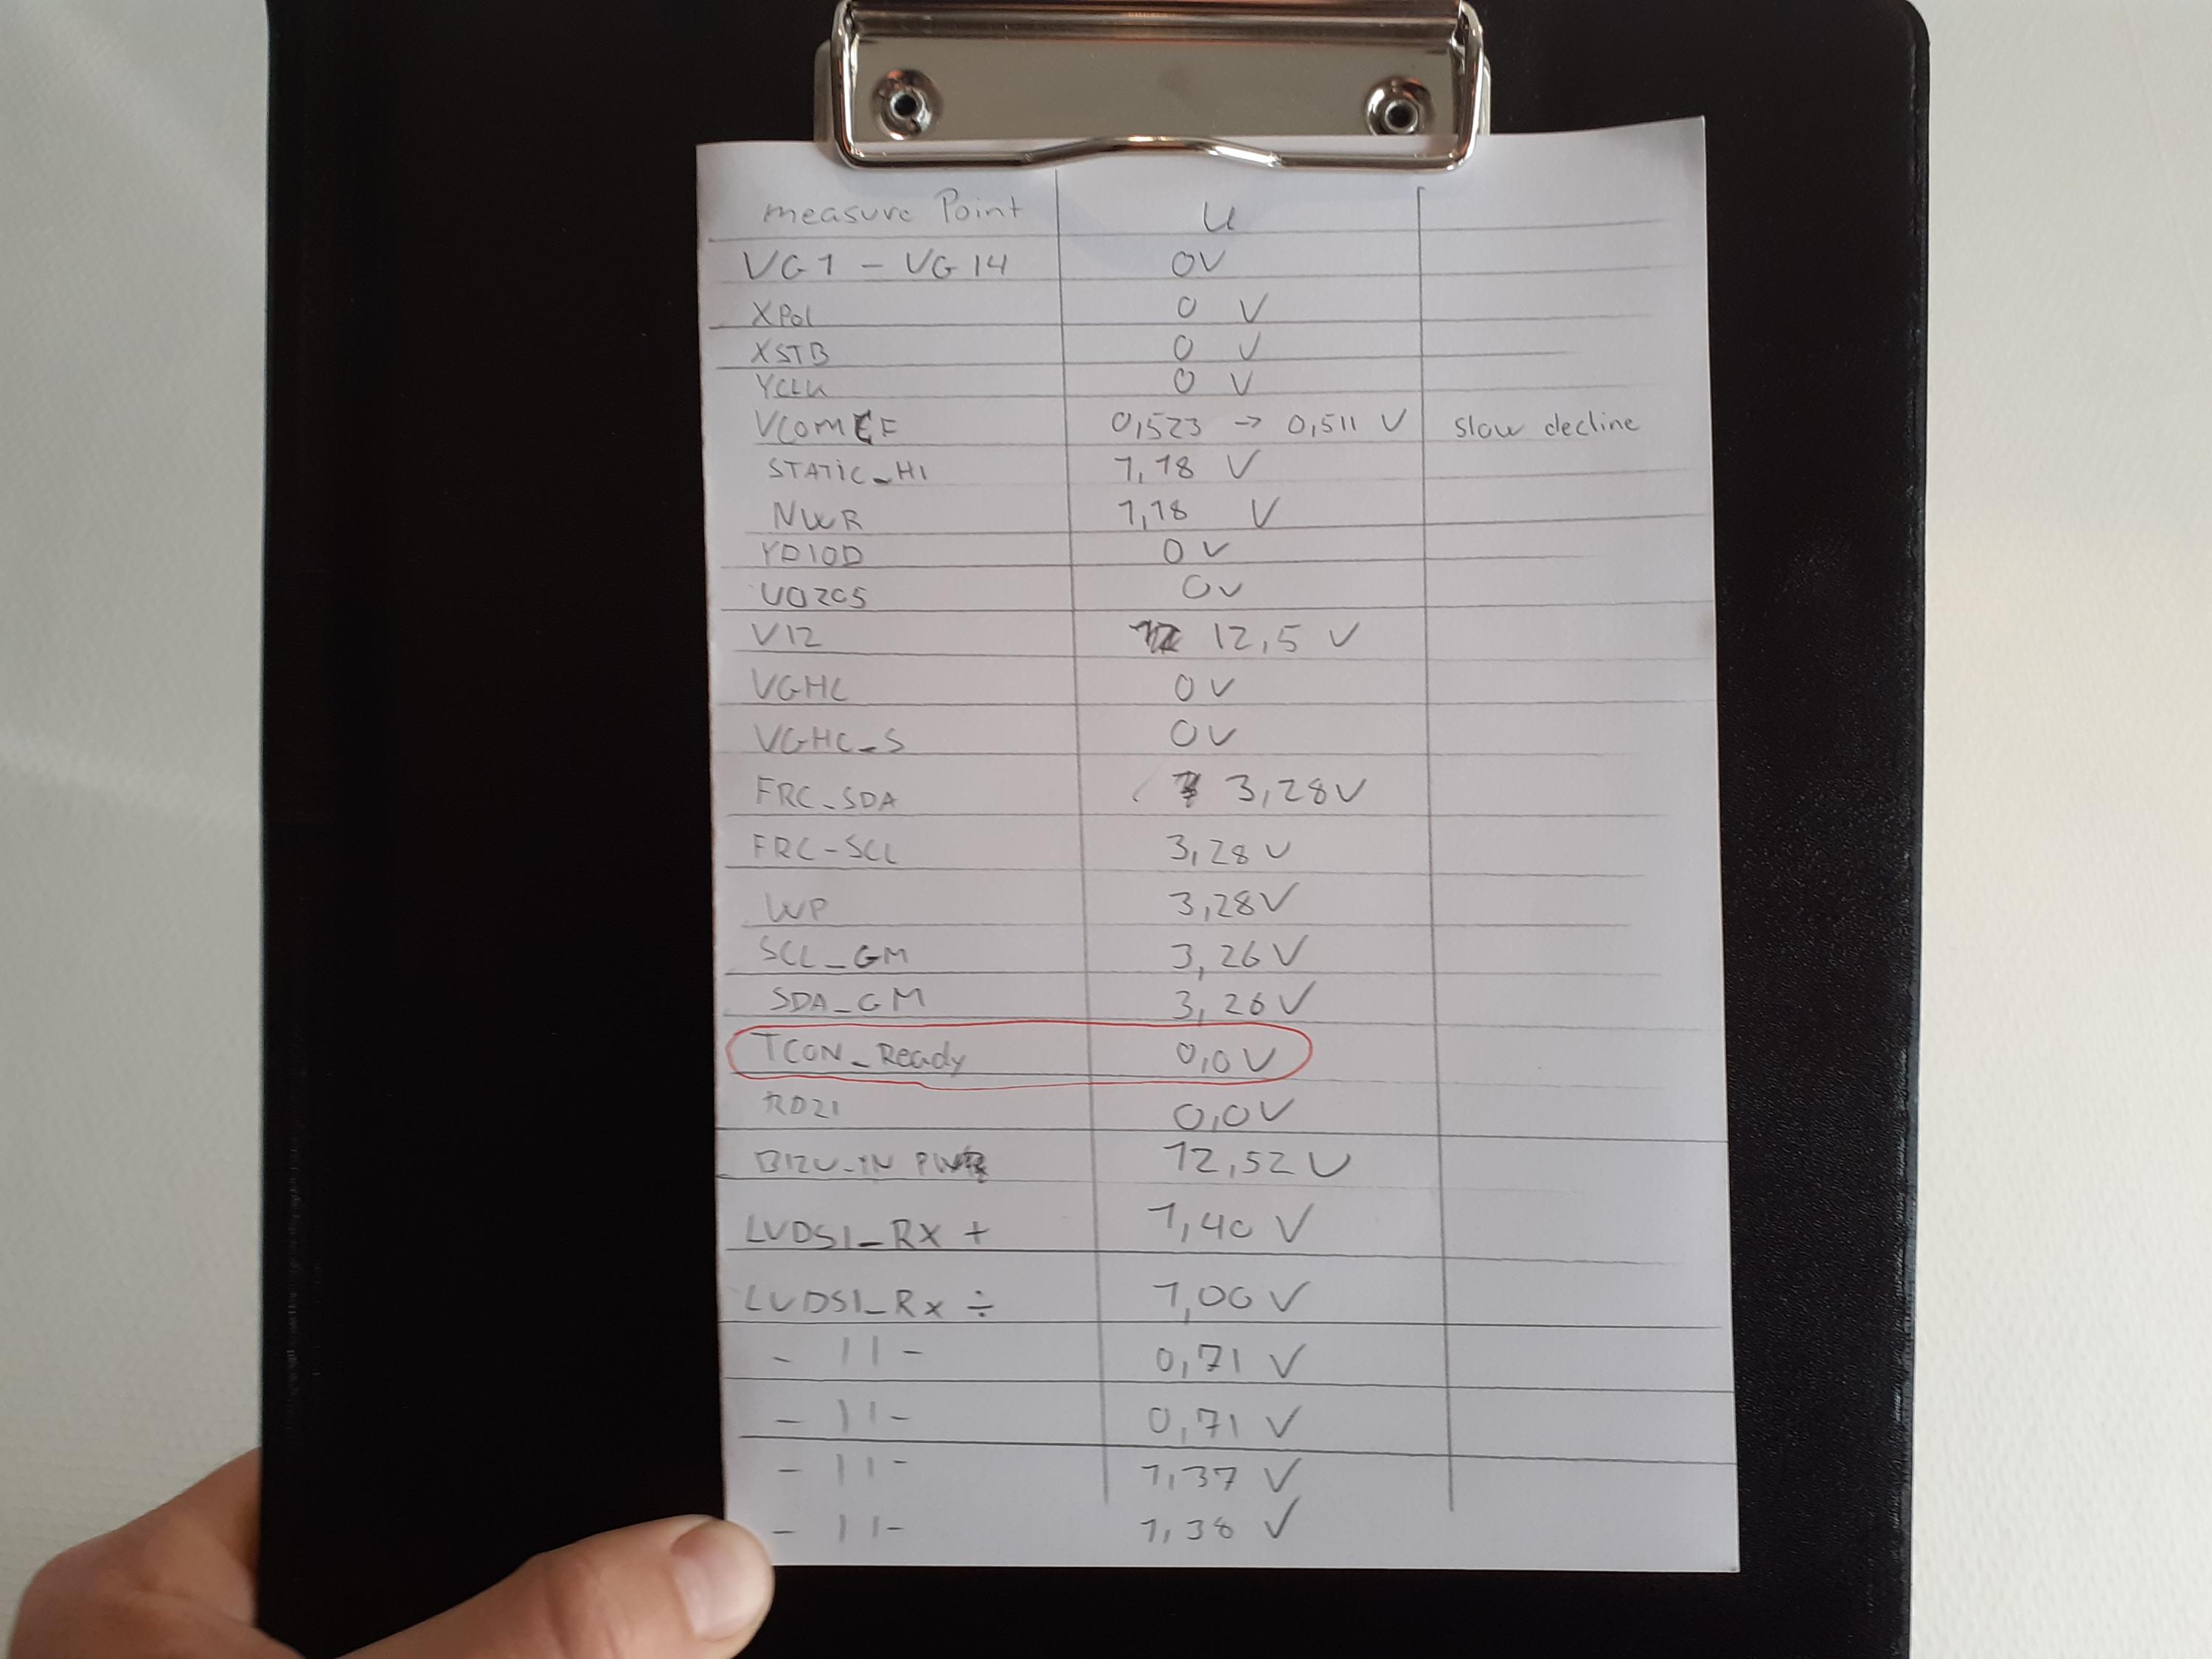 measure Point U
VG1 - VG14 0V
XPol 0 V
XSTB 0 V
YCLK 0 V
VCOM F 0,523 → 0,511 V slow decline
STATiC_HI 1,18 V
NWR 1,18 V
YDIOD 0V
VO2C5 0V
V12 12,5 V
VGHC 0V
VGHC_S 0V
FRC_SDA 3,28V
FRC-SCL 3,28V
WP 3,28V
SCL_GM 3,26V
SDA_GM 3,26V
TCON_Ready 0,0V
RD21 0,0V
B12V-IN 12,52V
LVDS1_RX + 1,40 V
LVDS1_Rx ÷ 1,06 V
- 11 - 0,71 V
- 11 - 0,71 V
- 11 - 1,37 V
- 11 - 1,38 V